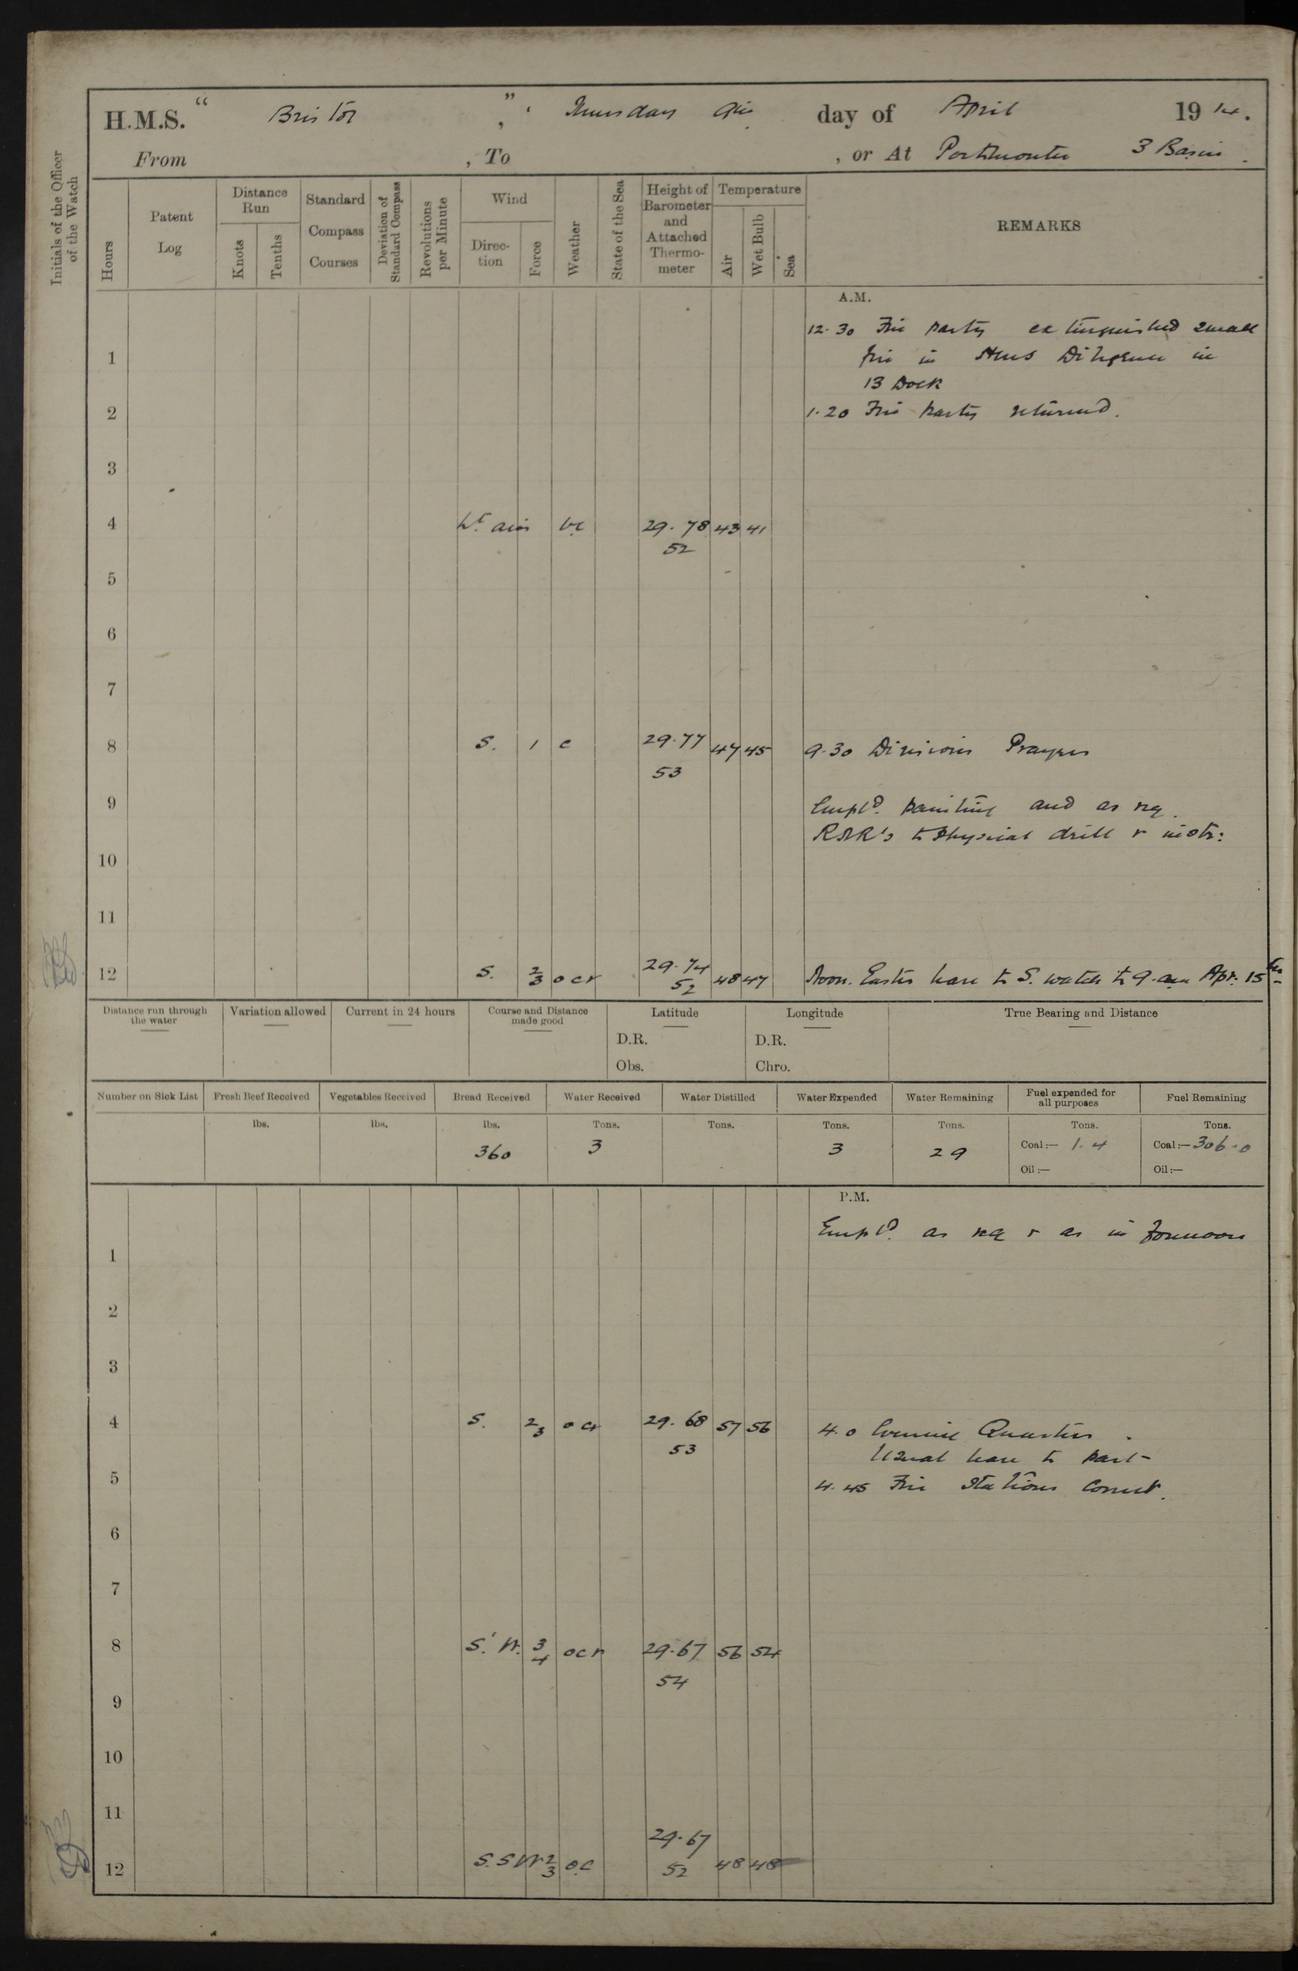 H.M.S. “ Bristol ” , Thursday 9th day of April 19 14.
From , To , or At Portsmouth 3 Basin.
Initials of the Officer of the Watch
Hours
Patent Log
Distance Run
Knots
Tenths
Standard Compass Courses
Deviation of Standard Compass
Revolutions per Minute
Wind
Direction
Force
Weather
State of the Sea
Height of Barometer and Attached Thermometer
Temperature
Air
Wet Bulb
Sea
REMARKS
A.M.
12.30 Fire party extinguished small
1 fire in HMS Diligence in
13 Dock
2 1.20 Fire party returned.
3
4 Lt airs bc 29.78 43 41
52
5
6
7
8 S. 1 c 29.77 47 45 9.30 Divisions Prayers
53
9 Empld. painting and as req.
RNR's to Physical drill & instr:
10
11
12 S. 2/3 ocr 29.74 48 47 Noon. Easter leave to S. watch to 9. am Apr. 15th
52
Distance run through the water
Variation allowed
Current in 24 hours
Course and Distance made good
Latitude
D.R.
Obs.
Longitude
D.R.
Chro.
True Bearing and Distance
Number on Sick List
Fresh Beef Received
lbs.
Vegetables Received
lbs.
Bread Received
lbs.
360
Water Received
Tons.
3
Water Distilled
Tons.
Water Expended
Tons.
3
Water Remaining
Tons.
29
Fuel expended for all purposes
Tons.
Coal:— 1.4
Oil:—
Fuel Remaining
Tons.
Coal:— 306.0
Oil:—
P.M.
Empld. as req & as in forenoon
1
2
3
4 S. 2/3 ocr 29.68 57 56 4.0 Evening Quarters.
53 Usual leave to part
5 4.45 Fire Stations Correct.
6
7
8 S.W. 3/4 ocr 29.67 56 54
54
9
10
11
29.67
12 S.SW 2/3 o.c 52 48 48